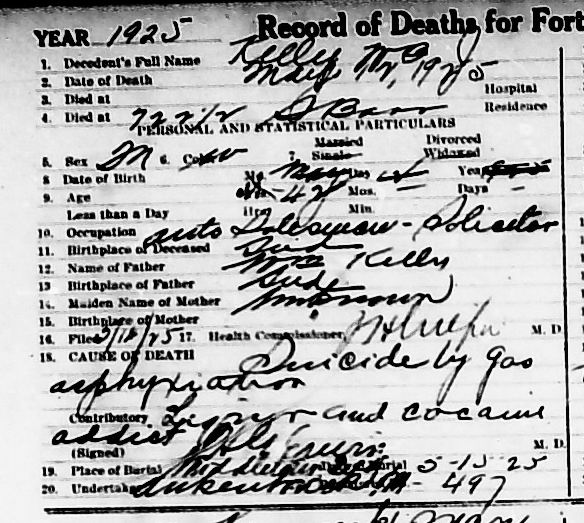 YEAR 1925 Record of Deaths for Fort
1. Decedent's Full Name Kelly Wm J
2. Date of Death May 1925 Hospital
3. Died at Residence
4. Died at 722 1/2 S Barr
PERSONAL AND STATISTICAL PARTICULARS
5. Sex M 6. Color w 7. Married Single Divorced Widowed
8 Date of Birth Mo. May Day Year
9. Age Yrs. 42 Mos. — Days —
Less than a Day Hrs. Min.
10. Occupation auto Salesman - Solicitor
11. Birthplace of Deceased Ind
12. Name of Father Wm Kelly
13 Birthplace of Father Ind
14. Maiden Name of Mother Unknown
15. Birthplace of Mother
16. Filed 17. Health Commissioner M. D.
18. CAUSE OF DEATH Suicide by gas
asphyxiation
Contributory Liquor and cocaine
addict
(Signed) M. D.
19. Place of Burial Date of Burial 5-15-25
20. Undertaker 497